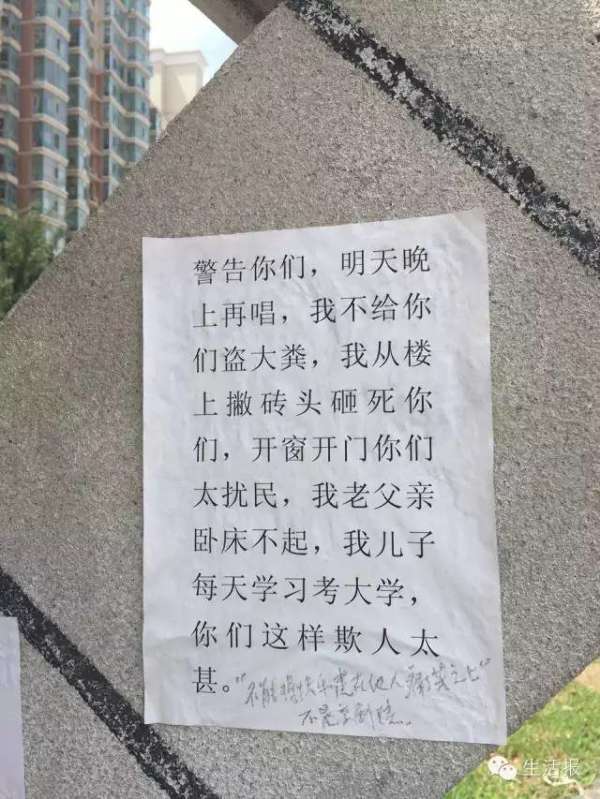 警告你们，明天晚
上再唱，我不给你
们盗大粪，我从楼
上撇砖头砸死你
们，开窗开门你们
太扰民，我老父亲
卧床不起，我儿子
每天学习考大学，
你们这样欺人太
甚。"不能将快乐建在他人痛苦之上"
不是
生活报